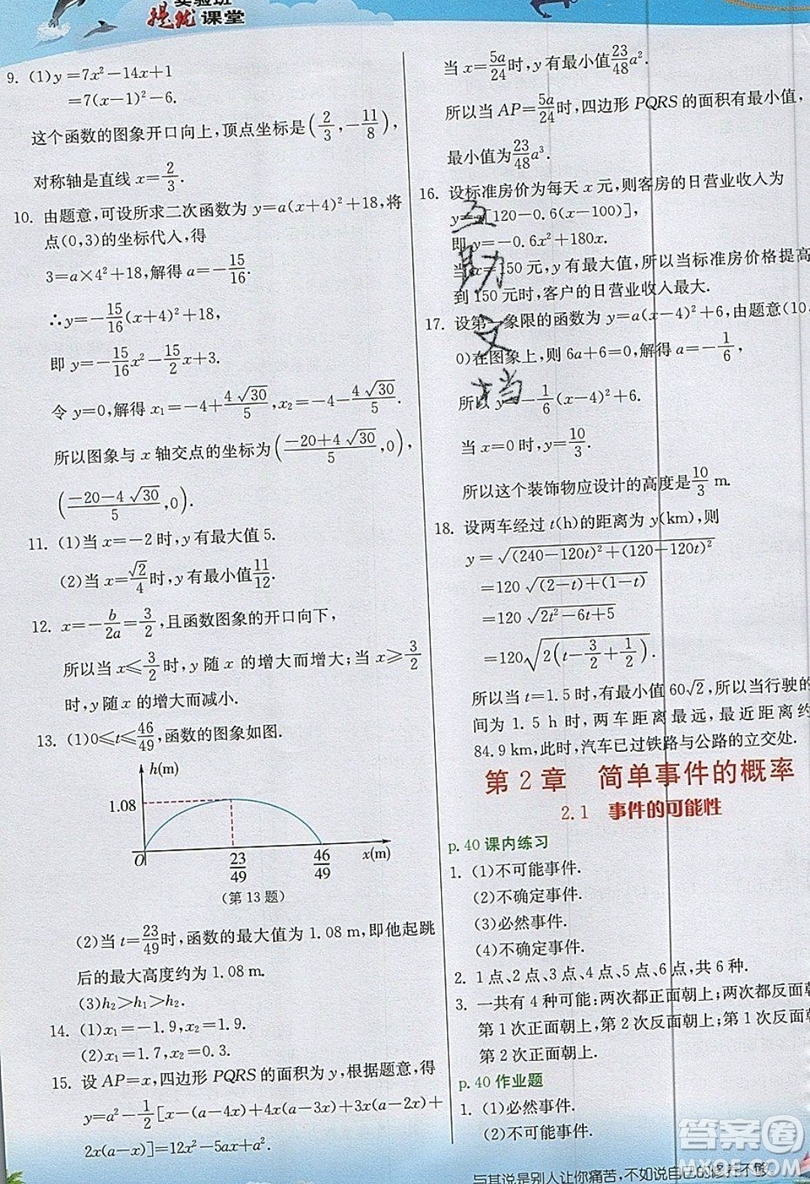 实验班
提优课堂
9. (1)y=7x²-14x+1
=7(x-1)²-6.
这个函数的图象开口向上,顶点坐标是(2/3,-11/8),
对称轴是直线 x=2/3.
10. 由题意,可设所求二次函数为 y=a(x+4)²+18,将
点(0,3)的坐标代人,得
3=a×4²+18,解得 a=-15/16.
∴y=-15/16(x+4)²+18,
即 y=-15/16x²-15/2x+3.
令 y=0,解得 x₁=-4+4√30/5,x₂=-4-4√30/5.
所以图象与 x 轴交点的坐标为((-20+4√30)/5,0),
((-20-4√30)/5,0).
11. (1)当 x=-2 时,y 有最大值 5.
(2)当 x=√2/4时,y 有最大值11/12.
12. x=-b/2a=3/2,且函数图象的开口向下,
所以当 x≤3/2时,y 随 x 的增大而增大;当 x≥3/2
时,y 随 x 的增大而减小.
13. (1)0≤t≤46/49,函数的图象如图.
h(m)
1.08
O 23/49 46/49 x(m)
(第 13 题)
(2)当 t=23/49时,函数的最大值为 1.08 m,即他起跳
后的最大高度约为 1.08 m.
(3)h₂>h₁>h₂.
14. (1)x₁=-1.9,x₂=1.9.
(2)x₁=1.7,x₂=0.3.
15. 设 AP=x,四边形 PQRS 的面积为 y,根据题意,得
y=a²-1/2[x-(a-4x)+2x(a-3x)+3x(a-2x)+
2x(a-x)]=12x²-5ax+a².
当 x=5a/24时,y 有最小值23/48a².
所以当 AP=5a/24时,四边形 PQRS 的面积有最小值,
最小值为23/48a³.
16. 设标准房价为每天 x 元,则客房的日营业收入为
y=x[120-0.6(x-100)],
即 y=-0.6x²+180x.
当 x=150 元时,y 有最大值,所以当标准房价格提高
到 150 元时,客户的日营业收入最大.
17. 设第一象限的函数为 y=a(x-4)²+6,由题意(10,
0)在图象上,则 6a+6=0,解得 a=-1/6,
所以 y=-1/6(x-4)²+6.
当 x=0 时,y=10/3.
所以这个装饰物应设计的高度是10/3 m.
18. 设两车经过 t(h)的距离为 y(km),则
y=√((240-120t)²+(120-120t)²)
=120√((2-t)²+(1-t)²)
=120√(2t²-6t+5)
=120√(2(t-3/2+1/2)).
所以当 t=1.5 时,有最小值 60√2,所以当行驶的
间为 1.5 h 时,两车距离最远,最远距离约
84.9 km,此时,汽车已过铁路与公路的立交处.
第 2 章 简单事件的概率
2.1 事件的可能性
p.40 课内练习
1. (1)不可能事件.
(2)不确定事件.
(3)必然事件.
(4)不确定事件.
2. 1点、2点、3点、4点、5点、6点,共 6 种.
3. 一共有 4 种可能:两次都正面朝上;两次都反面朝
第 1 次正面朝上,第 2 次反面朝上;第 1 次反面朝
第 2 次正面朝上.
p.40 作业题
1. (1)必然事件.
(2)不可能事件.
与其说是别人让你痛苦,不如说自己的修养不够
互助文档
答案圈
MXQE.COM